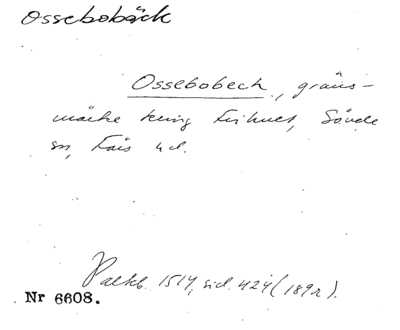 Ossebobäck
Ossebobech, gräns-
märke kring Sävede
sn, Fårs hd.
Palkb. 1514, sid. 424 (1892).
Nr 6608.